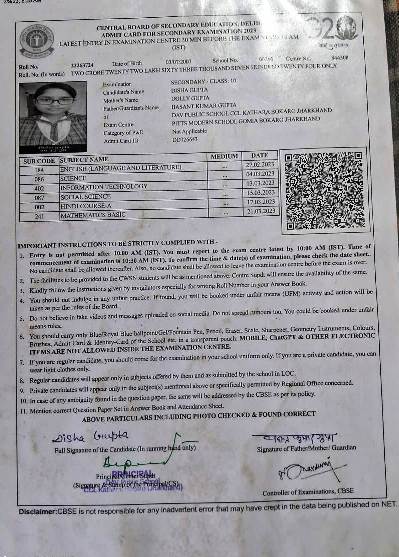 CENTRAL BOARD OF SECONDARY EDUCATION, DELHI
ADMIT CARD FOR SECONDARY EXAMINATION 2023
LATEST ENTRY IN EXAMINATION CENTRE 30 MIN BEFORE THE EXAM TIME 10 AM
(IST)
Roll No. Date of Birth School No. Centre No.
Roll No. (In words) TWO CRORE TWENTY TWO LAKH SIXTY THREE THOUSAND SEVEN HUNDRED TWENTY FOUR ONLY
Examination SECONDARY - CLASS: 10
Candidate's Name DISHA GUPTA
Mother's Name DOLLY GUPTA
Father/Guardian's Name BASANT KUMAR GUPTA
of DAV PUBLIC SCHOOL CCL KATHARA BOKARO JHARKHAND
Exam Centre PITTS MODERN SCHOOL GOMIA BOKARO JHARKHAND
Category of PwD Not Applicable
Admit Card ID
SUB CODE SUBJECT NAME MEDIUM DATE
184 ENGLISH (LANGUAGE AND LITERATURE) 27.02.2023
086 SCIENCE 04.03.2023
402 INFORMATION TECHNOLOGY 13.03.2023
087 SOCIAL SCIENCE 15.03.2023
002 HINDI COURSE-A 17.03.2023
241 MATHEMATICS BASIC 21.03.2023
IMPORTANT INSTRUCTIONS TO BE STRICTLY COMPLIED WITH -
1. Entry is not permitted after 10.00 AM (IST). You must report to the exam centre latest by 10.00 AM (IST). Time of
commencement of examination is 10:30 AM (IST). To confirm the time & date(s) of examination, please check the date sheet.
No candidate shall be allowed thereafter. Also, no candidate shall be allowed to leave the examination centre before the exam is over.
2. The facilities to be provided to the CWSN students will be as mentioned above. Centre Supdt will ensure the availability of the same.
3. Kindly follow the instructions given by invigilators especially for writing Roll Number in your Answer Book.
4. You should not indulge in any unfair practice. If found, you will be booked under unfair means (UFM) activity and action will be
taken as per the rules of the Board.
5. Do not believe in fake videos and messages uploaded on social media. Do not spread rumours too. You could be booked under unfair
means rules.
6. You should carry only Blue/Royal Blue ballpoint/Gel/Fountain Pen, Pencil, Eraser, Scale, Sharpener, Geometry Instruments, Colours,
Brushes, Admit Card & Identity-Card of the School etc. in a transparent pouch. MOBILE, ChatGPT & OTHER ELECTRONIC
ITEMS ARE NOT ALLOWED INSIDE THE EXAMINATION CENTRE.
7. If you are regular candidate, you should come for the examination in your school uniform only. If you are a private candidate, you can
wear light clothes only.
8. Regular candidates will appear only in subjects offered by them and as submitted by the school in LOC.
9. Private candidates will appear only in the subject(s) mentioned above or specifically permitted by Regional Office concerned.
10. In case of any ambiguity found in the question paper, the same will be addressed by the CBSE as per its policy.
11. Mention correct Question Paper Set in Answer Book and Attendance Sheet.
ABOVE PARTICULARS INCLUDING PHOTO CHECKED & FOUND CORRECT
Disha Gupta
Full Signature of the Candidate (In running hand only) Signature of Father/Mother/ Guardian
PRINCIPAL
Controller of Examinations, CBSE
Disclaimer:CBSE is not responsible for any inadvertent error that may have crept in the data being published on NET.